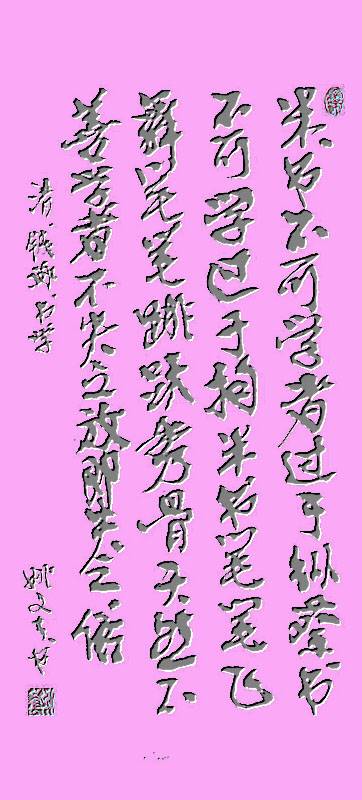 米书不可学者过于纵蔡书
不可学已于拘米书笔笔飞
舞笔笔跳跃秀骨天然不
善学者不失之放即失之俗
清钱泳书学
姚文